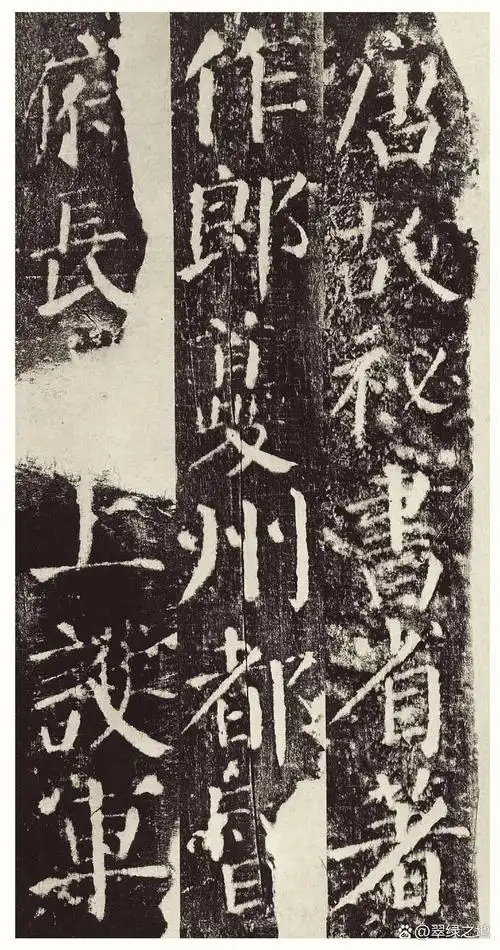 唐故祕書省著
作郎夔州都督
府長上護軍
@翠绿之地